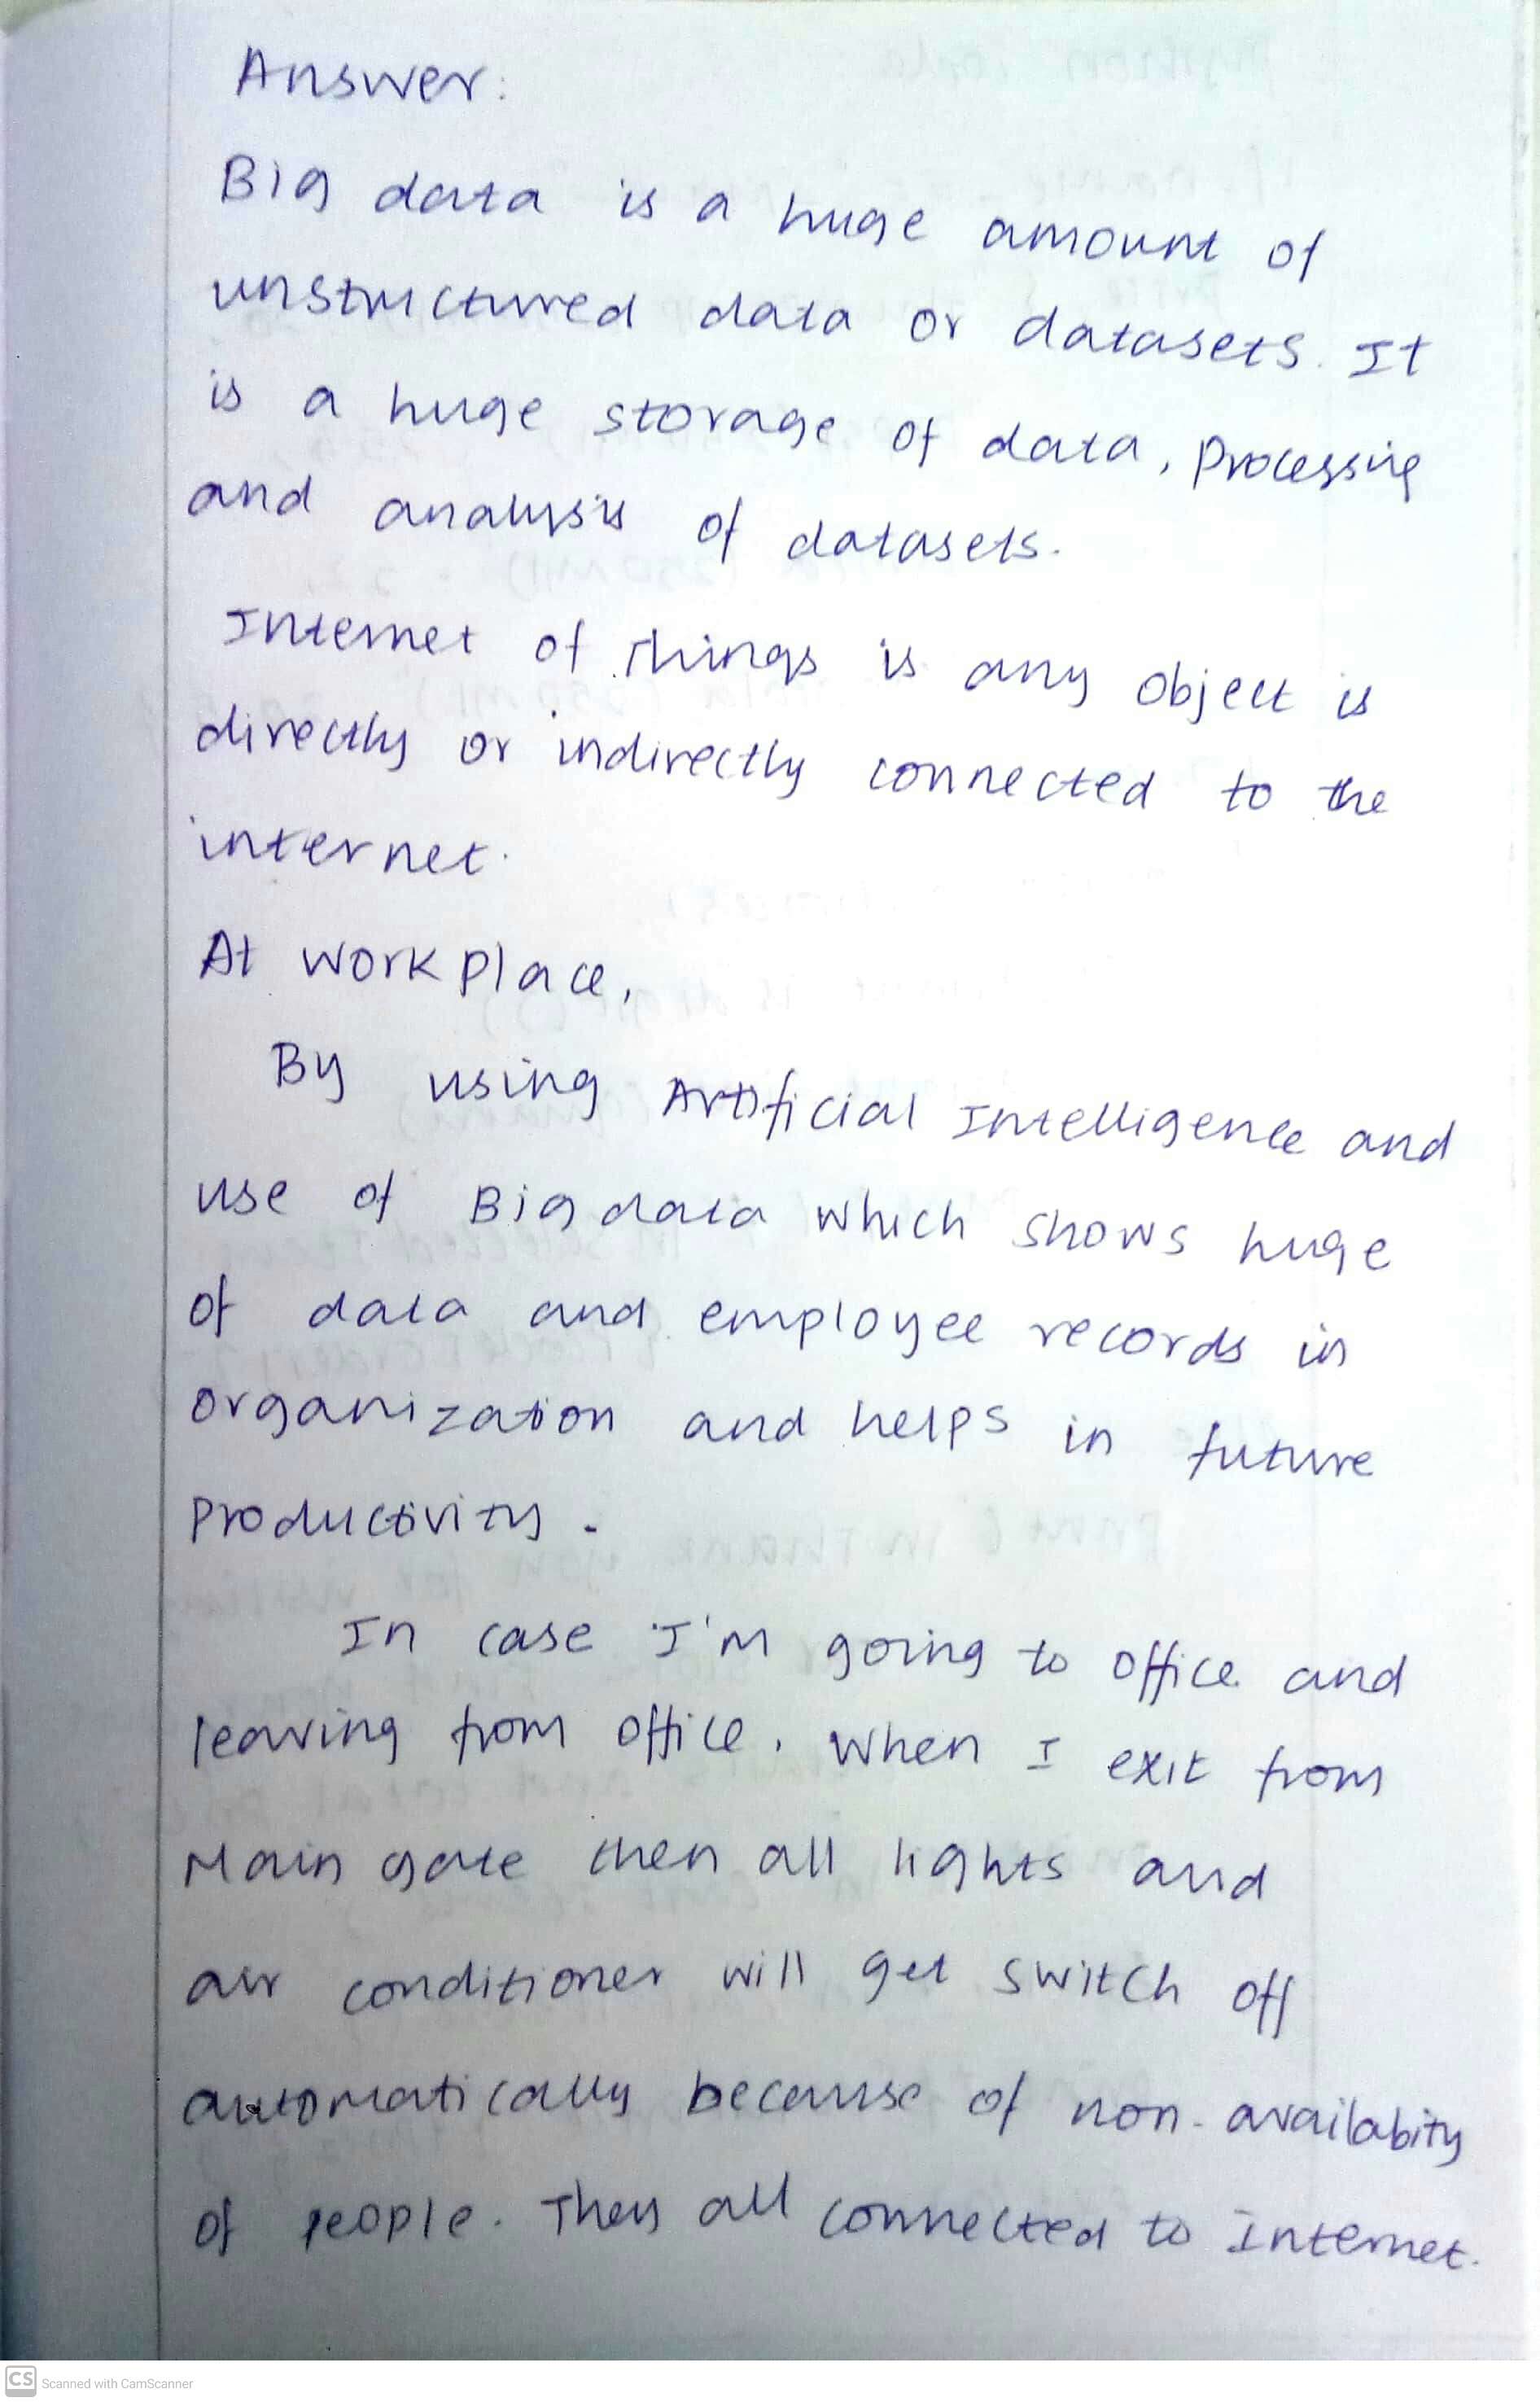 Answer:
Big data is a huge amount of
unstructured data or datasets. It
is a huge storage of data, processing
and analysis of datasets.
Internet of Things is any object is
directly or indirectly connected to the
internet.
At workplace,
By using Artificial Intelligence and
use of Big data which shows huge
of data and employee records in
organization and helps in future
productivity.
In case I'm going to office and
leaving from office. When I exit from
Main gate then all lights and
air conditioner will get switch off
automatically because of non-availabity
of people. They all connected to Internet.
CS Scanned with CamScanner